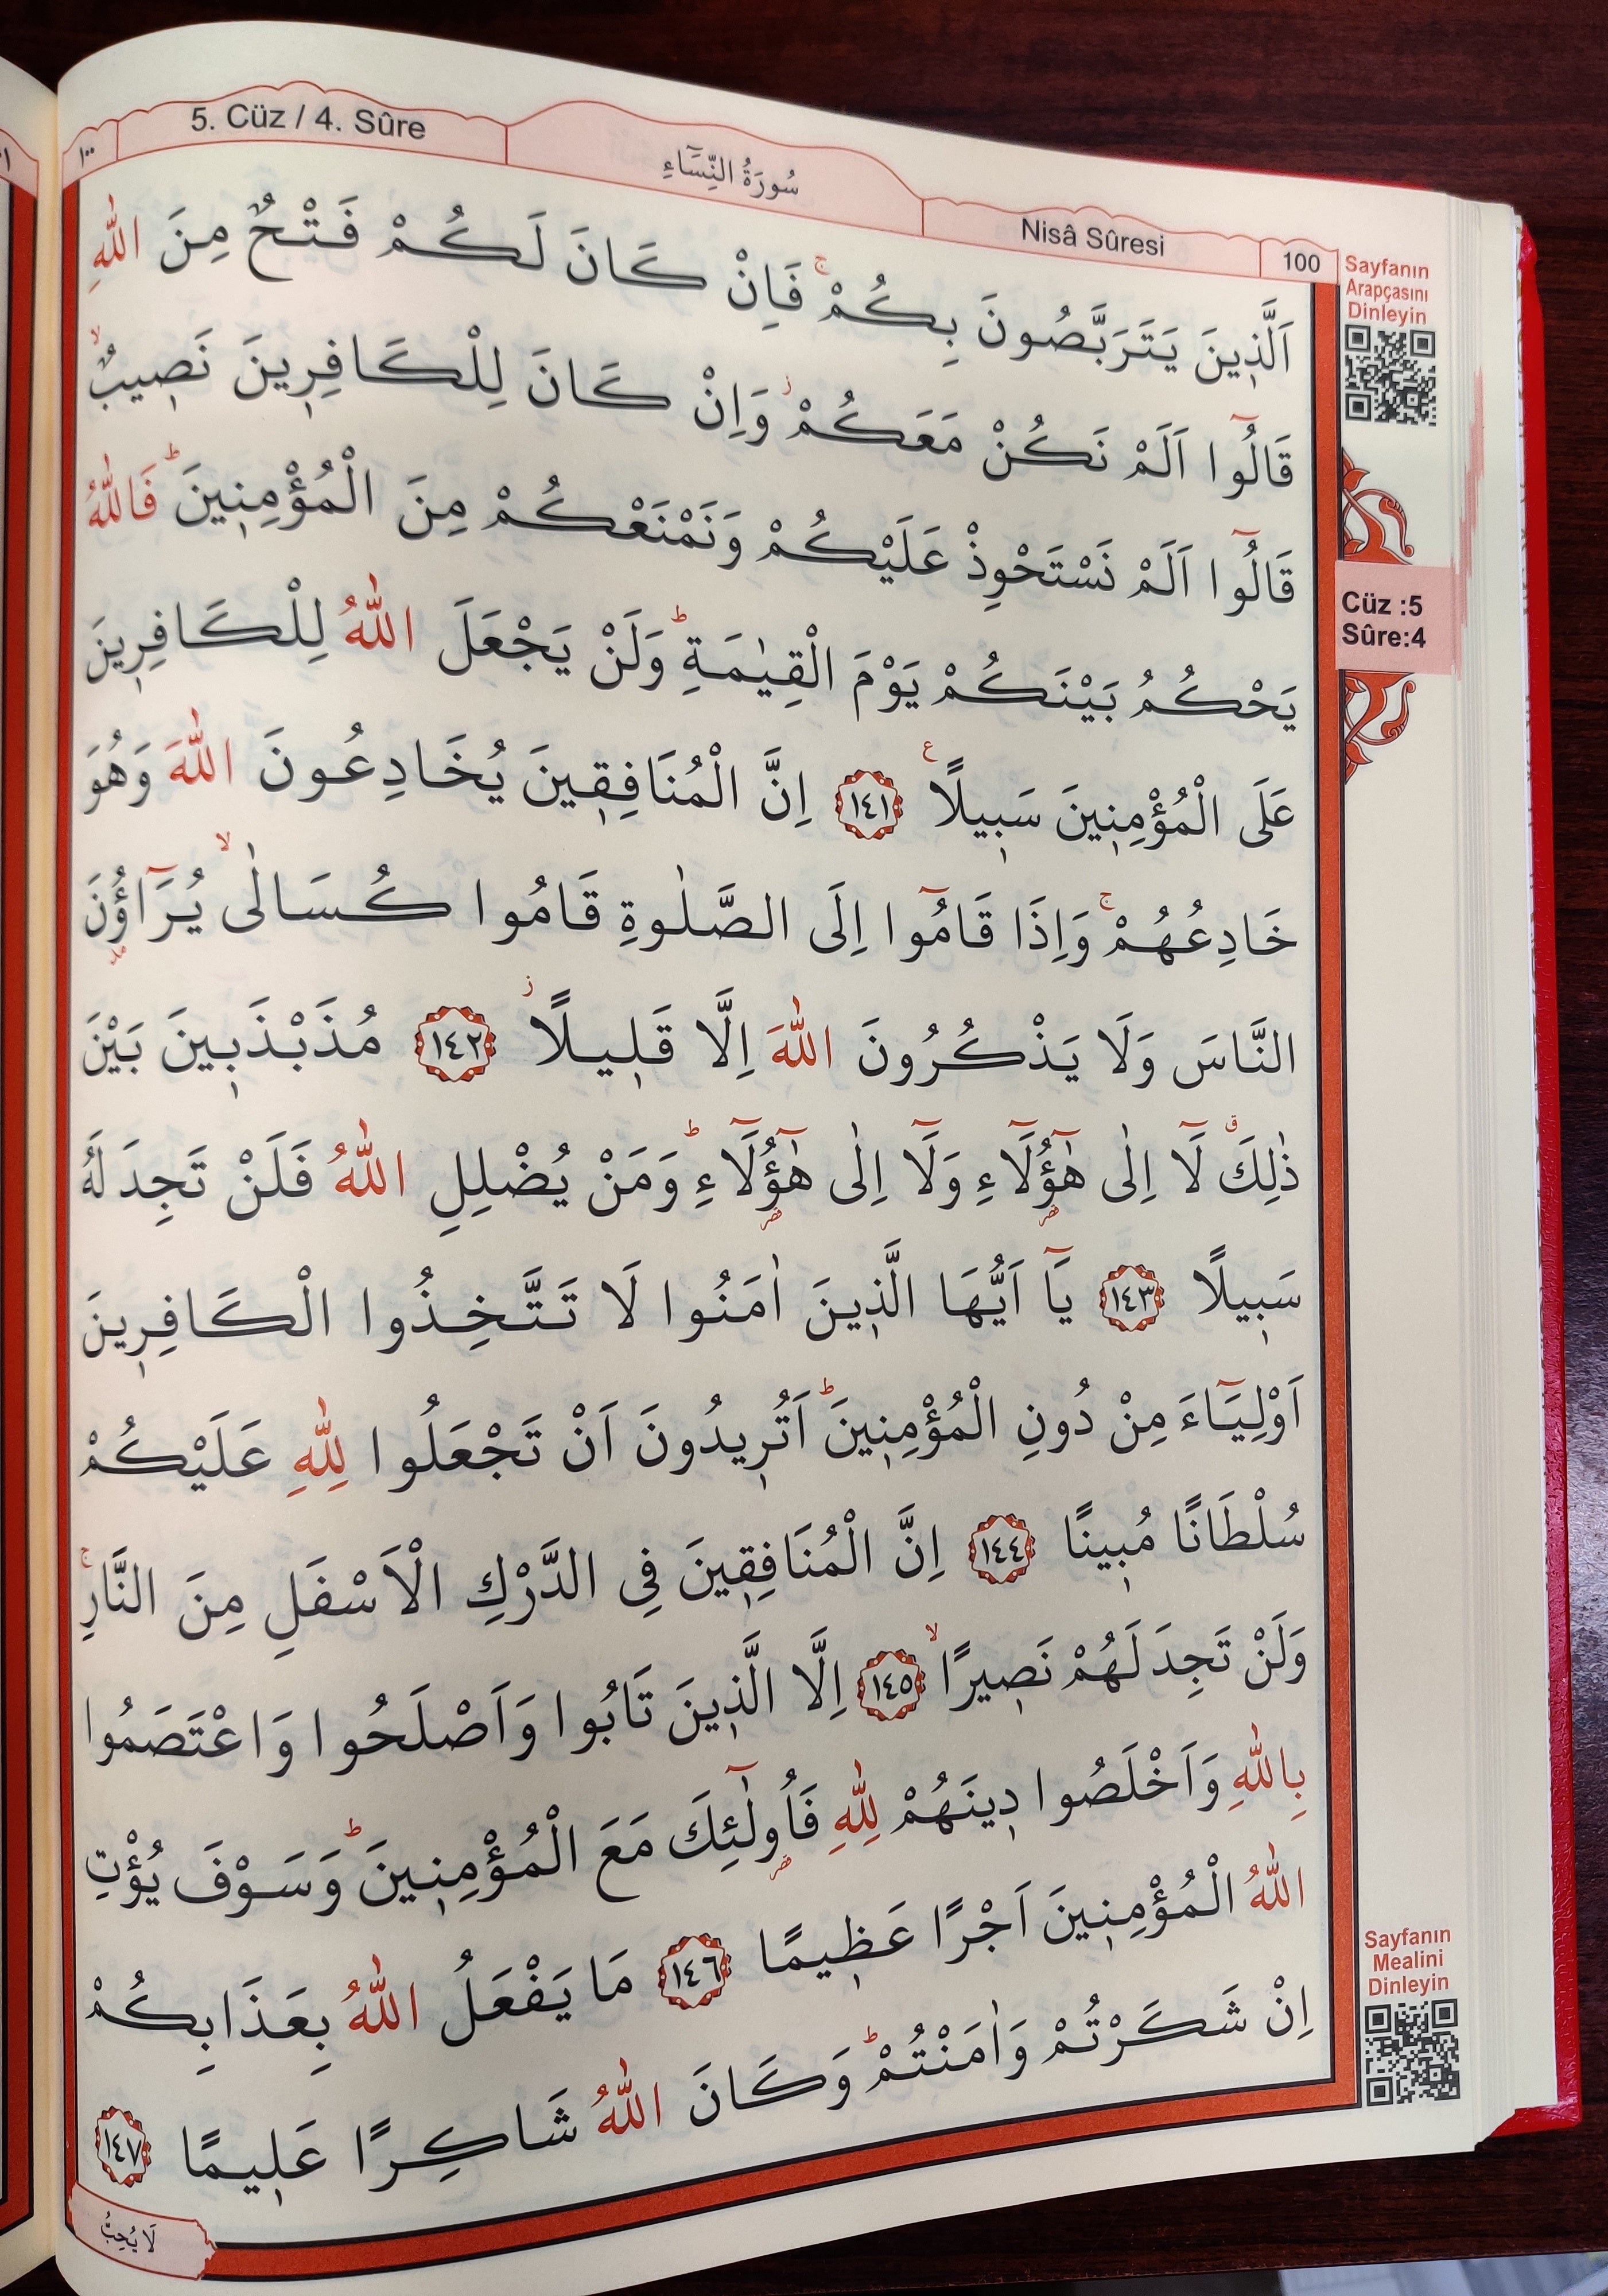 5. Cüz / 4. Sûre
سُورَةُ النِّسَٓاءِ
Nisâ Sûresi
100
١٠٠
اَلَّذ۪ينَ يَتَرَبَّصُونَ بِكُمْۚ فَاِنْ كَانَ لَكُمْ فَتْحٌ مِنَ اللّٰهِ
قَالُٓوا اَلَمْ نَكُنْ مَعَكُمْۘ وَاِنْ كَانَ لِلْكَافِر۪ينَ نَص۪يبٌۙ
قَالُٓوا اَلَمْ نَسْتَحْوِذْ عَلَيْكُمْ وَنَمْنَعْكُمْ مِنَ الْمُؤْمِن۪ينَۜ فَاللّٰهُ
يَحْكُمُ بَيْنَكُمْ يَوْمَ الْقِيٰمَةِۜ وَلَنْ يَجْعَلَ اللّٰهُ لِلْكَافِر۪ينَ
عَلَى الْمُؤْمِن۪ينَ سَب۪يلًا۟ ﴿١٤١﴾ اِنَّ الْمُنَافِق۪ينَ يُخَادِعُونَ اللّٰهَ وَهُوَ
خَادِعُهُمْۚ وَاِذَا قَامُٓوا اِلَى الصَّلٰوةِ قَامُوا كُسَالٰىۙ يُرَٓاؤُ۫نَ
النَّاسَ وَلَا يَذْكُرُونَ اللّٰهَ اِلَّا قَل۪يلًاۘ ﴿١٤٢﴾ مُذَبْذَب۪ينَ بَيْنَ
ذٰلِكَۗ لَٓا اِلٰى هٰٓؤُ۬لَٓاءِ وَلَٓا اِلٰى هٰٓؤُ۬لَٓاءِۜ وَمَنْ يُضْلِلِ اللّٰهُ فَلَنْ تَجِدَ لَهُ
سَب۪يلًا ﴿١٤٣﴾ يَٓا اَيُّهَا الَّذ۪ينَ اٰمَنُوا لَا تَتَّخِذُوا الْكَافِر۪ينَ
اَوْلِيَٓاءَ مِنْ دُونِ الْمُؤْمِن۪ينَۜ اَتُر۪يدُونَ اَنْ تَجْعَلُوا لِلّٰهِ عَلَيْكُمْ
سُلْطَانًا مُب۪ينًا ﴿١٤٤﴾ اِنَّ الْمُنَافِق۪ينَ فِي الدَّرْكِ الْاَسْفَلِ مِنَ النَّارِۚ
وَلَنْ تَجِدَ لَهُمْ نَص۪يرًاۙ ﴿١٤٥﴾ اِلَّا الَّذ۪ينَ تَابُوا وَاَصْلَحُوا وَاعْتَصَمُوا
بِاللّٰهِ وَاَخْلَصُوا د۪ينَهُمْ لِلّٰهِ فَاُو۬لٰٓئِكَ مَعَ الْمُؤْمِن۪ينَۜ وَسَوْفَ يُؤْتِ
اللّٰهُ الْمُؤْمِن۪ينَ اَجْرًا عَظ۪يمًا ﴿١٤٦﴾ مَا يَفْعَلُ اللّٰهُ بِعَذَابِكُمْ
اِنْ شَكَرْتُمْ وَاٰمَنْتُمْۜ وَكَانَ اللّٰهُ شَاكِرًا عَل۪يمًا ﴿١٤٧﴾
لَا يُحِبُّ
Sayfanın
Arapçasını
Dinleyin
Cüz :5
Sûre:4
Sayfanın
Mealini
Dinleyin